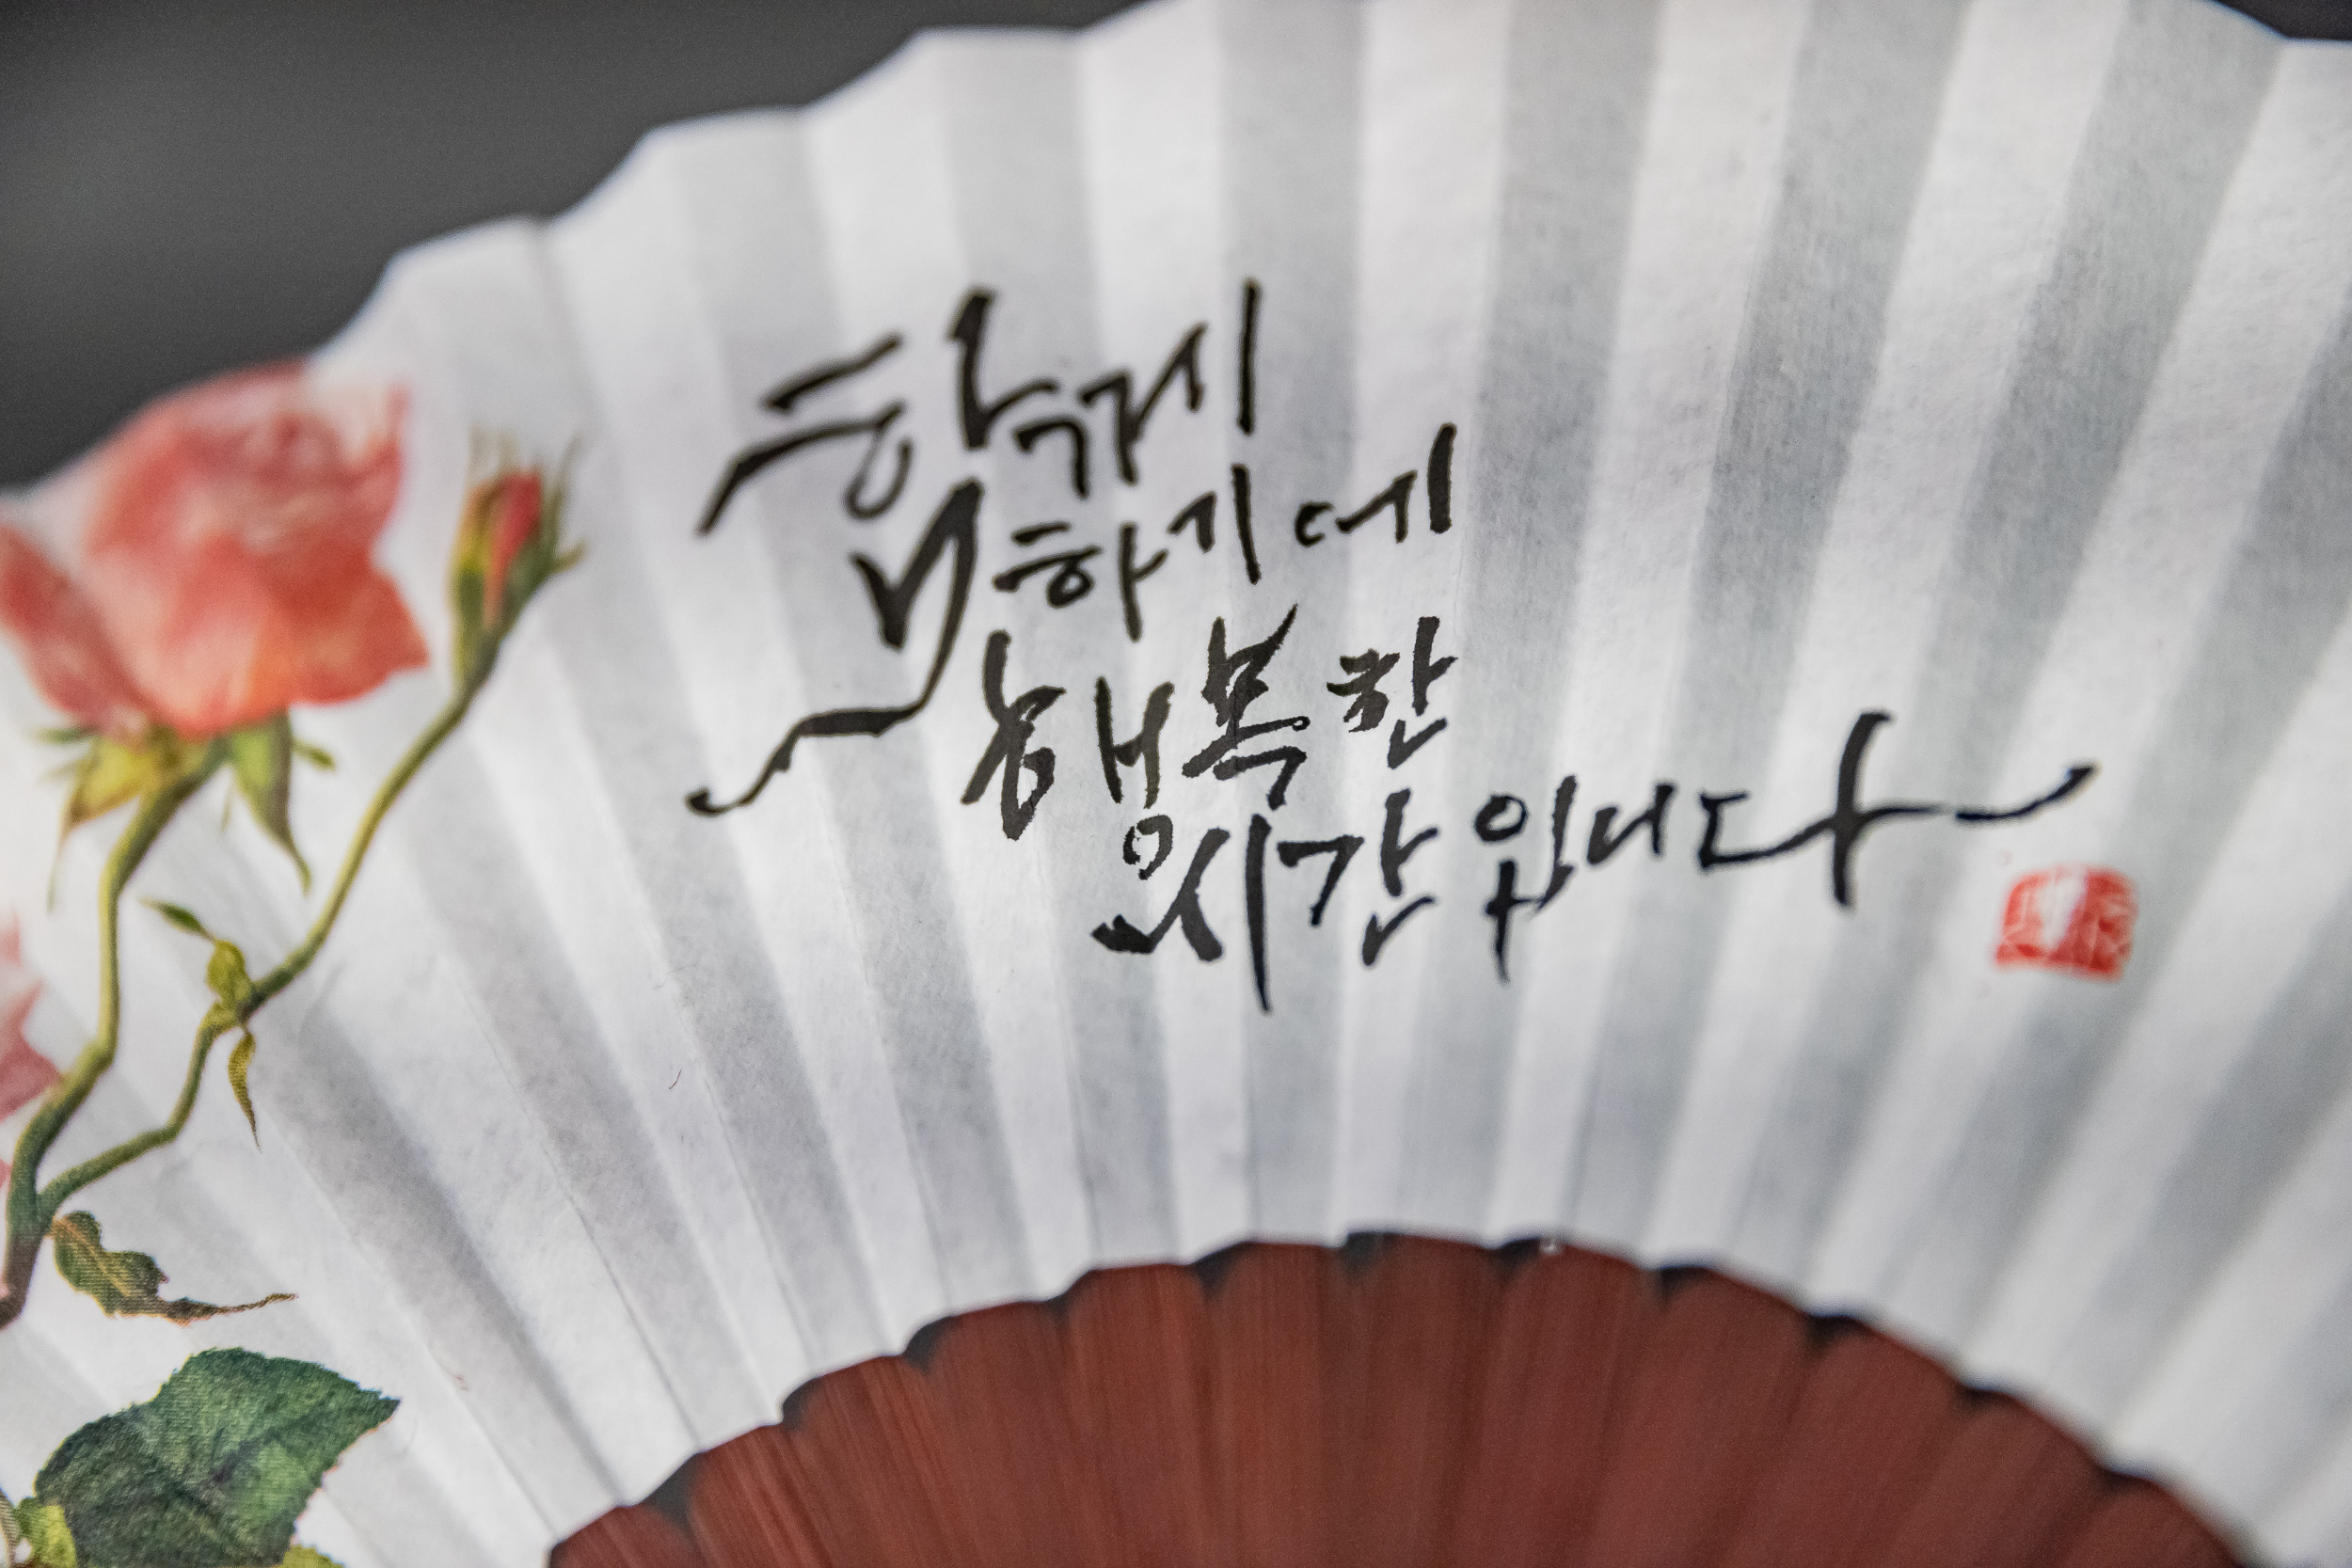 함께
하기에
행복한
시간입니다